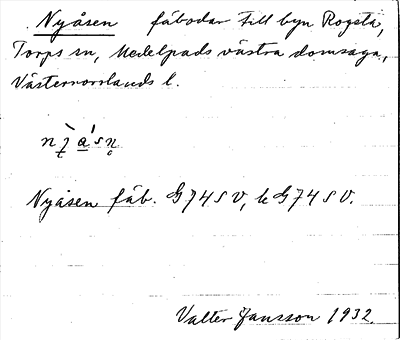 Nyåsen fäbodar till byn Rogsta,
Torps sn, Medelpads västra domsaga,
Västernorrlands l.
Nyåsen fäb. G74SV, k G74SV.
Valter Jansson 1932.